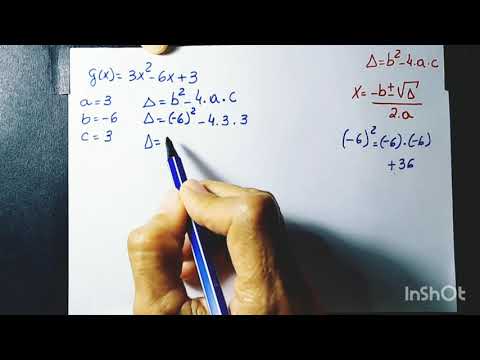 g(x) = 3x² - 6x + 3
a = 3
b = -6
c = 3
Δ = b² - 4.a.c
Δ = (-6)² - 4.3.3
Δ =
Δ = b² - 4.a.c
X = (-b ± √Δ) / 2.a
(-6)² = (-6).(-6)
+36
InShOt